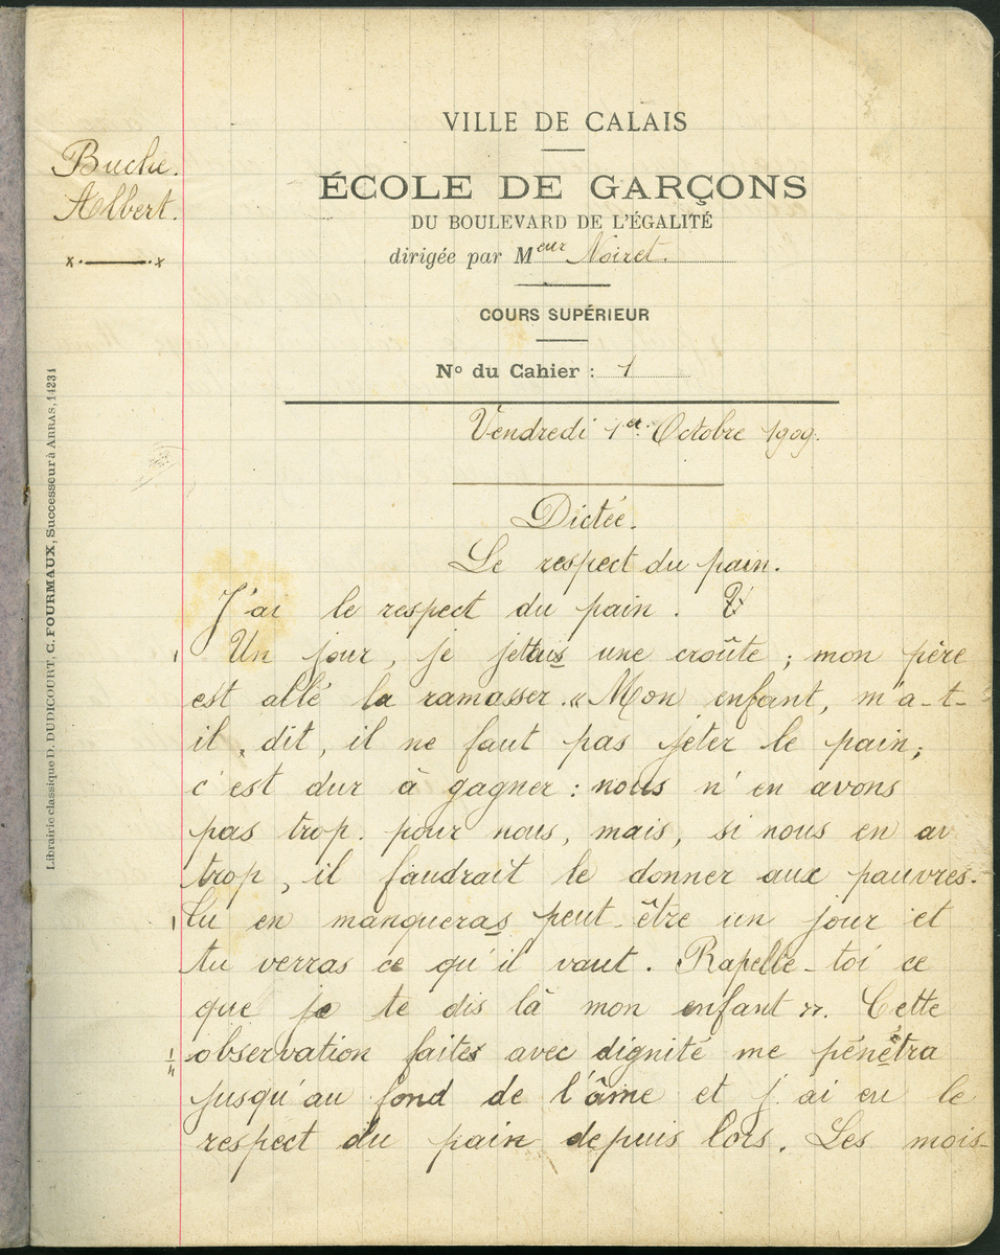 VILLE DE CALAIS
ÉCOLE DE GARÇONS
DU BOULEVARD DE L'ÉGALITÉ
dirigée par Meur Noiret.
COURS SUPÉRIEUR
No du Cahier : 1
Buche.
Albert.
x.———.x
Librairie classique D. DUDICOURT, C. FOURMAUX, Successeur à ARRAS, 14234
Vendredi 1er Octobre 1909.
Dictée.
Le respect du pain.
J'ai le respect du pain.
1 Un jour, je jettais une croûte ; mon père
est allé la ramasser. « Mon enfant, m'a-t-
il, dit, il ne faut pas jeter le pain;
c'est dur à gagner : nous n'en avons
pas trop. pour nous, mais, si nous en av
trop, il faudrait le donner aux pauvres.
1 tu en manqueras peut-être un jour et
tu verras ce qu'il vaut. Rapelle-toi ce
que je te dis là mon enfant ». Cette
observation faites avec dignité me pénétra
jusqu'au fond de l'âme et j'ai eu le
respect du pain depuis lors. Les mois-